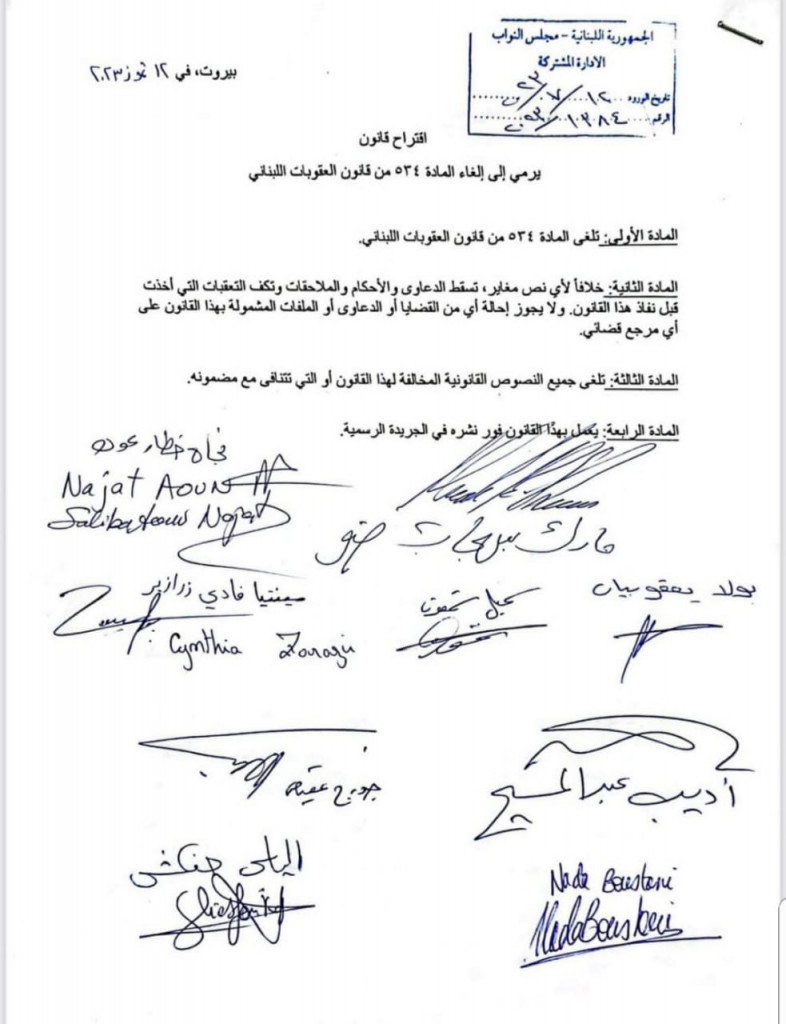 الجمهورية اللبنانية - مجلس النواب
الادارة المشتركة
تاريخ الورود ١٢/٧/٢٣
الرقم
بيروت، في ١٢ تموز ٢٠٢٣
اقتراح قانون
يرمي إلى إلغاء المادة ٥٣٤ من قانون العقوبات اللبناني
المادة الأولى: تلغى المادة ٥٣٤ من قانون العقوبات اللبناني.
المادة الثانية: خلافاً لأي نص مغاير، تسقط الدعاوى والأحكام والملاحقات وتكف التعقبات التي أخذت
قبل نفاذ هذا القانون. ولا يجوز إحالة أي من القضايا أو الدعاوى أو الملفات المشمولة بهذا القانون على
أي مرجع قضائي.
المادة الثالثة: تلغى جميع النصوص القانونية المخالفة لهذا القانون أو التي تتنافى مع مضمونه.
المادة الرابعة: يعمل بهذا القانون فور نشره في الجريدة الرسمية.
نجاة خطار عون
Najat Aoun
Saliba Aoun Najat
مارك بهجات ضو
بولا يعقوبيان
كميل شمعون
سينتيا فادي زرازير
Cynthia Zarazir
أديب عبد المسيح
جورج عقيص
الياس حنكش
Nada Boustani
Nada Boustani